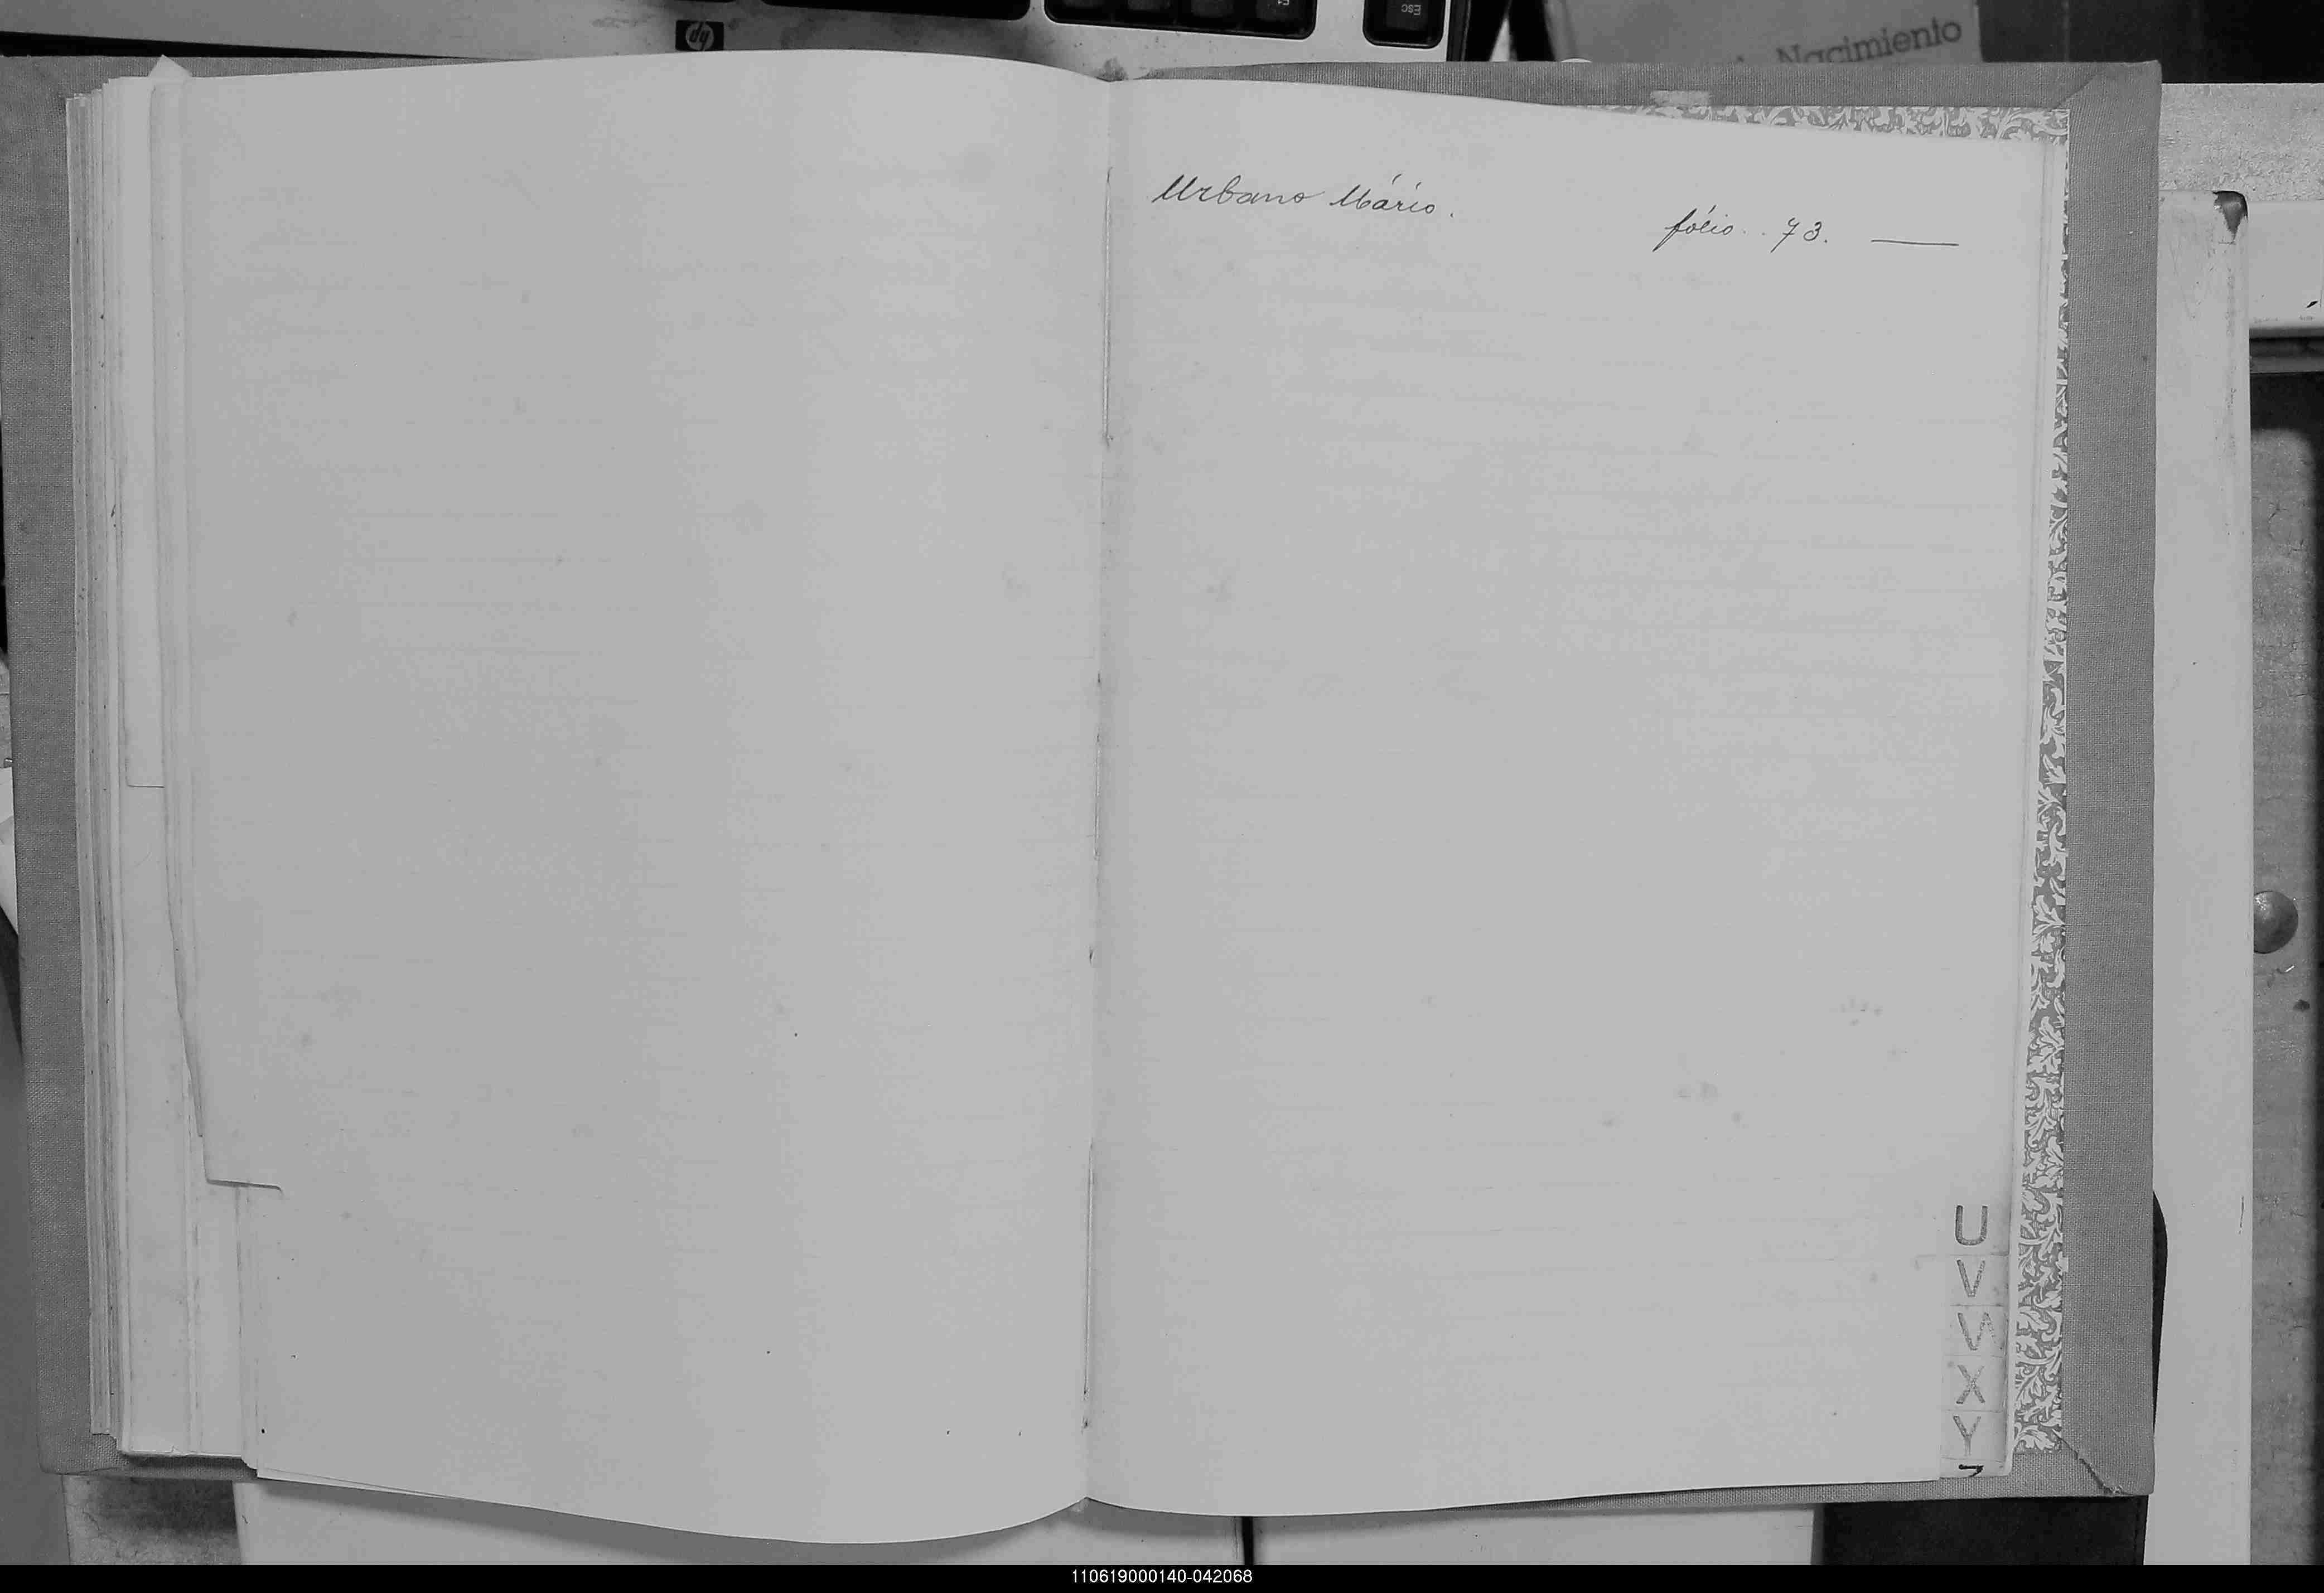 hp
F1
Esc
Nacimiento
Urbano Mário.
fólio. . 73. —
U
V
W
X
Y
110619000140-042068